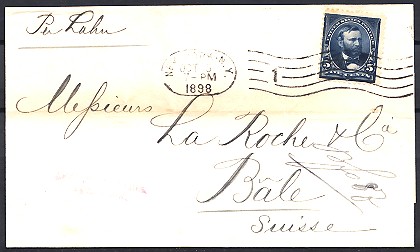 Per Lahn
N.Y.
OCT
PM
1898
1
5
Messieurs
La Roche & Cº
Bâle
Suisse